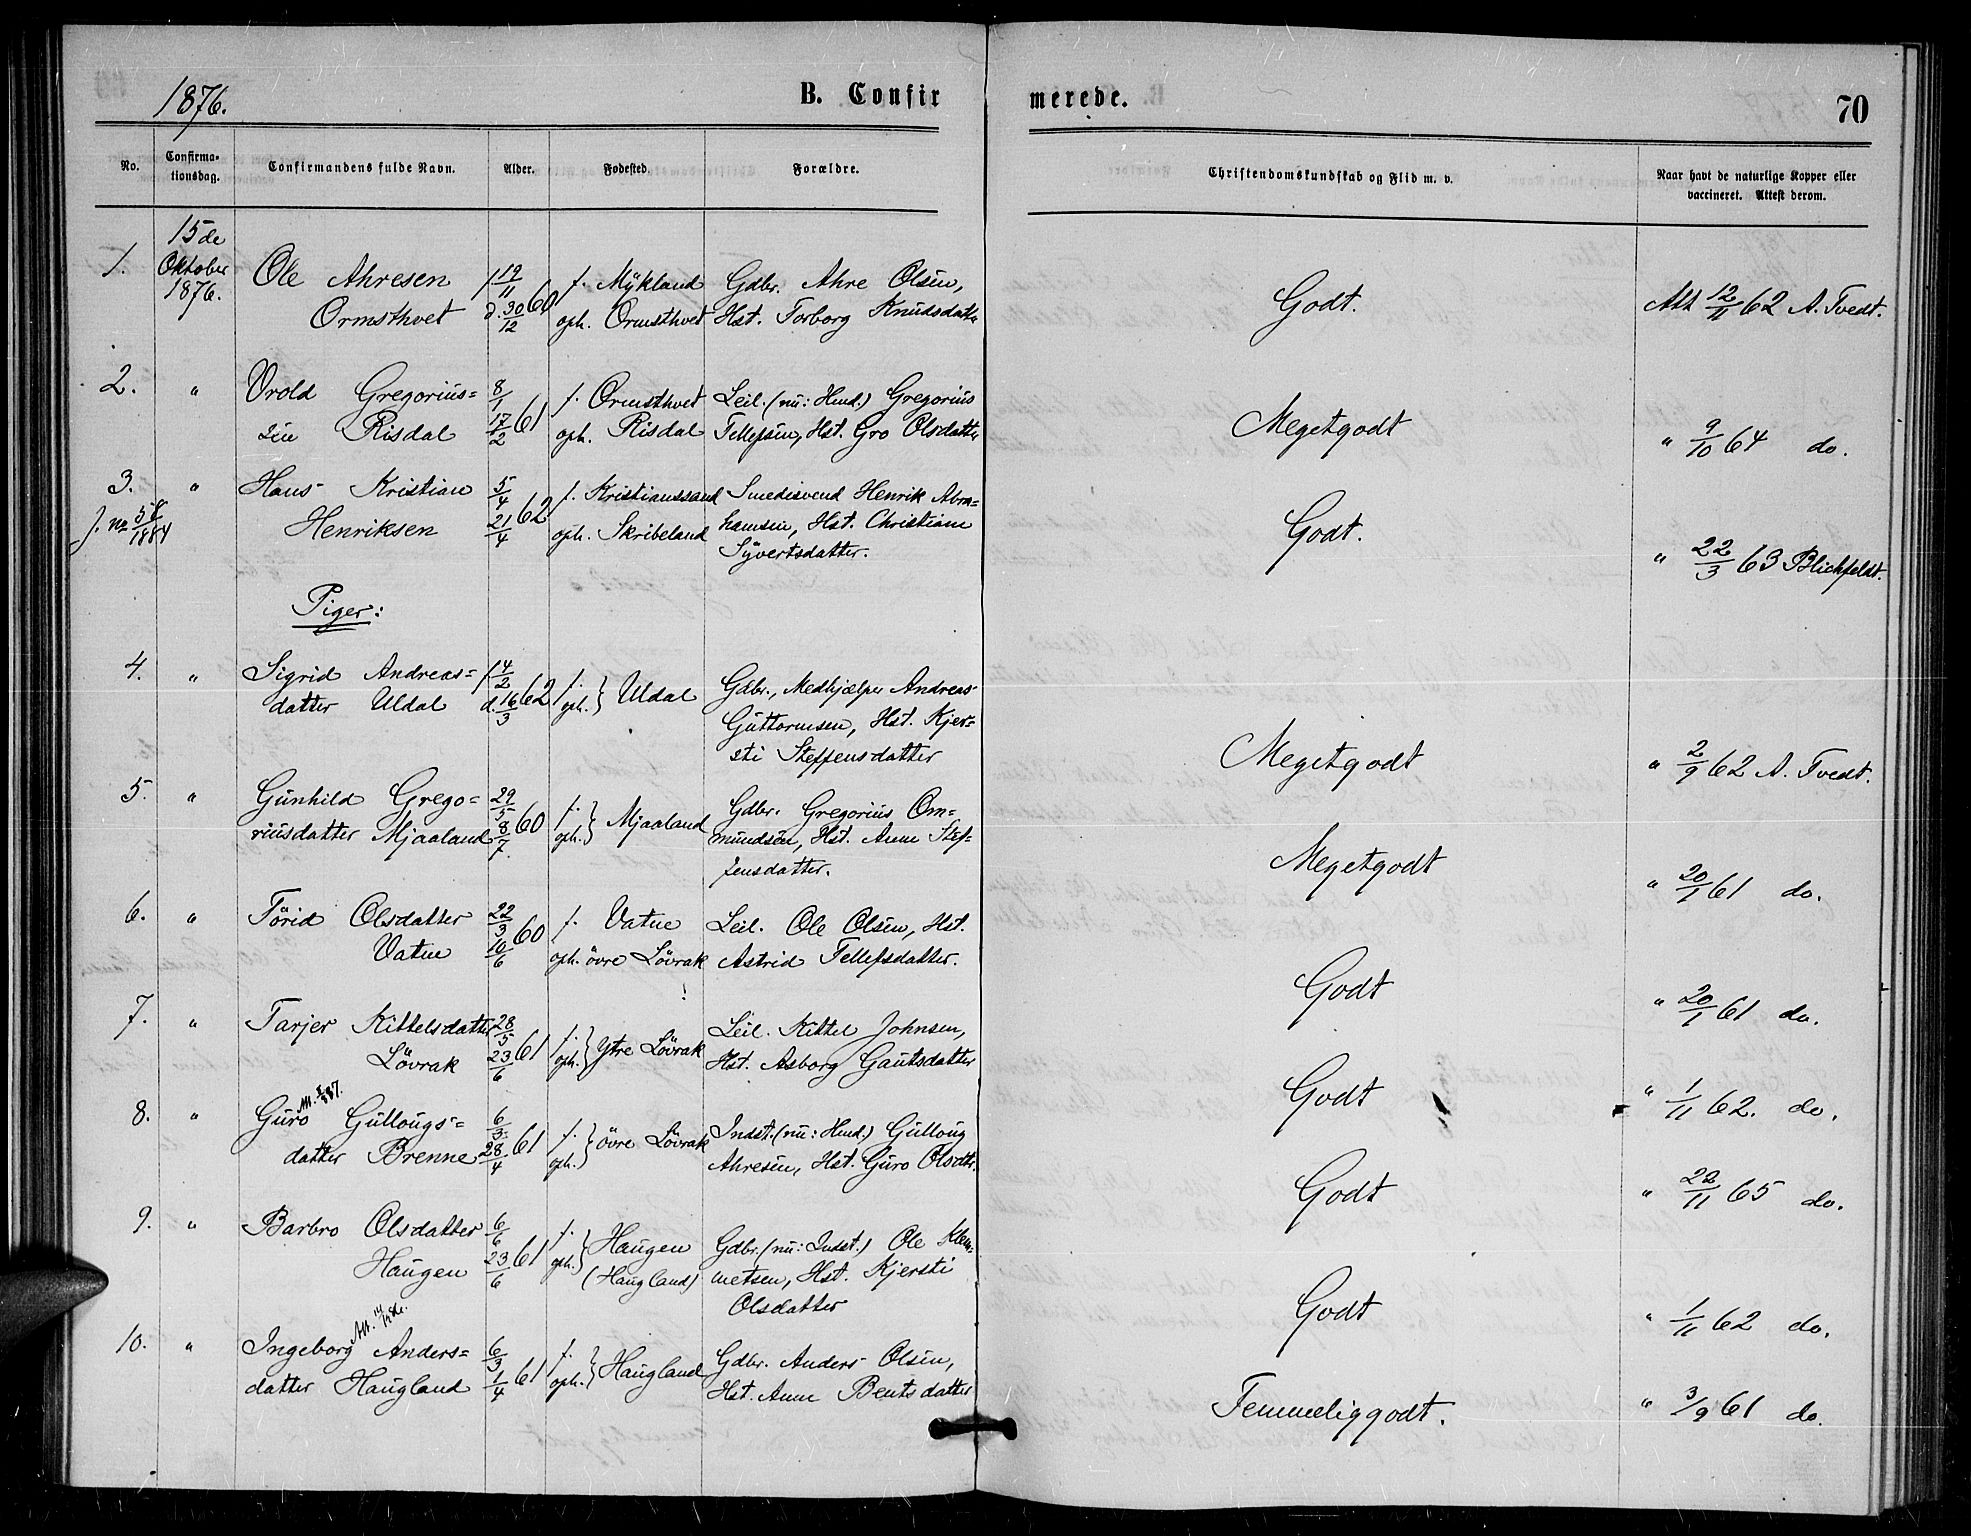 1876.
B. Confir
merede.
70
No.
Confirma-
tionsdag.
Confirmandens fulde Navn.
Alder.
Fødested.
Forældre.
Christendomskundskab og Flid m. v.
Naar havt de naturlige Kopper eller
vaccineret. Attest derom.
15de
1. Oktober Ole Ahresen f 19/11 f. Mykland Gdbr. Ahre Olsen, Godt. Att 12/11 62 A. Tvedt.
1876. Ormsthvet d. 30/12 60 oph. Ormsthvet Hst. Torborg Knudsdatter
2. " Vrold Gregorius= 8/1 f. Ormsthvet Leil. (nu: Hmd.) Gregorius Megetgodt " 9/10 64 do.
sen Risdal 17/2 61 oph. Risdal Tellefsen, Hst. Gro Olsdatter
3. " Hans Kristian 5/4 f. Kristianssand Smedisvend Henrik Abra= Godt. " 22/3 63 Blichfeldt.
J. no 58/1884 Henriksen 21/4 62 oph. Skribeland hamsen, Hst. Christiane
Syvertsdatter.
Piger:
4. " Sigrid Andreas= f 4/2 f. } Uldal Gdbr., Medhjælper Andreas Megetgodt " 2/9 62 A. Tvedt.
datter Uldal d. 16/3 62 oph. Guttormsen, Hst. Kjer=
sti Steffensdatter
5. " Gunhild Grego= 29/5 f. } Mjaaland Gdbr. Gregorius Om= Megetgodt " 20/1 61 do.
riusdatter Mjaaland 8/7 60 oph. mundsen, Hst. Anne Stef=
fensdatter.
6. " Törid Olsdatter 22/3 f. Vatne Leil. Ole Olsen, Hst. Godt " 20/1 61 do.
Vatne 10/6 60 oph. övre Lövrak Astrid Tellefsdatter.
7. " Tarjer Kittelsdatter 28/5 f. } Ytre Lövrak Leil. Kittel Johnsen, Godt " 1/11 62. do.
Lövrak 23/6 61 oph. Hst. Asborg Gautsdatter
8. " Guro Gullougs= 6/3 f. } övre Lövrak Indst. (nu: Hmd.) Gulloug Godt " 22/11 65 do.
datter Brenne 28/4 61 oph. Ahresen, Hst. Guro Olsdtr.
9. " Barbro Olsdatter 6/6 f. } Haugen Gdbr. (nu: Indst.) Ole Klem= Godt " 1/11 62 do.
Haugen 23/6 61 oph. (Haugland) metsen, Hst. Kjersti
Olsdatter
10. " Ingeborg Anders= 6/3 f. } Haugland Gdbr. Anders Olsen, Temmeliggodt. " 3/9 61 do.
datter Haugland 1/4 61 oph. Hst. Anne Bentsdatter